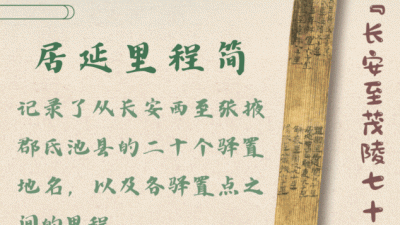 居延里程简
记录了从长安西至张掖
郡氐池县的二十个驿置
地名，以及各驿置点之
间的里程
『长安至茂陵七十